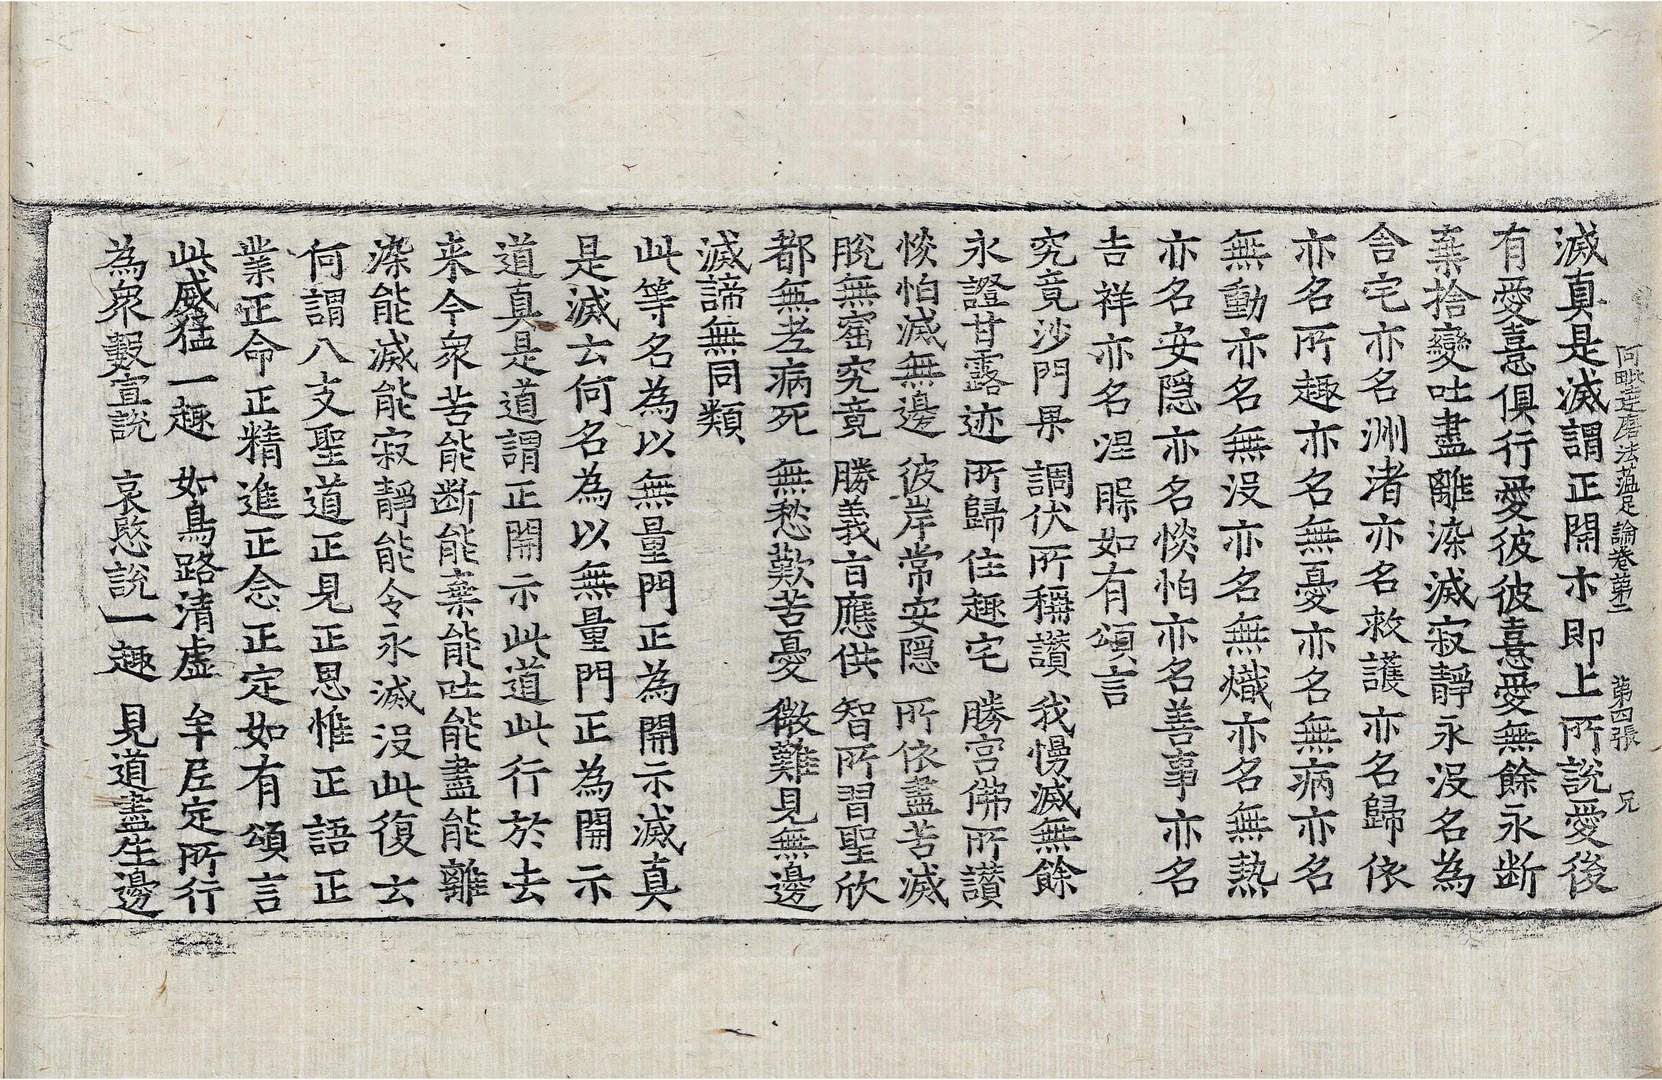 阿毗達磨法蘊足論卷第二 第四張 兄
滅真是滅謂正開示即上所說愛後
有愛憙俱行愛彼彼憙愛無餘永断
棄捨變吐盡離染滅寂靜永沒名為
舎宅亦名洲渚亦名救護亦名歸依
亦名所趣亦名無憂亦名無病亦名
無動亦名無沒亦名無熾亦名無熱
亦名安隱亦名惔怕亦名善事亦名
吉祥亦名涅槃如有頌言
究竟沙門果 調伏所稱讃 我慢滅無餘
永證甘露迹 所歸住趣宅 勝宮佛所讃
惔怕滅無邊 彼岸常安隱 所依盡苦滅
脫無窟究竟 勝義言應供 智所習聖欣
都無老病死 無愁歎苦憂 微難見無邊
滅諦無同類
此等名為以無量門正為開示滅真
是滅云何名為以無量門正為開示
道真是道謂正開示此道此行於去
来今衆苦能断能棄能吐能盡能離
染能滅能寂靜能令永滅沒此復云
何謂八支聖道正見正思惟正語正
業正命正精進正念正定如有頌言
此威猛一趣 如鳥路清虛 牟尼定所行
為衆數宣說 哀愍說一趣 見道盡生邊